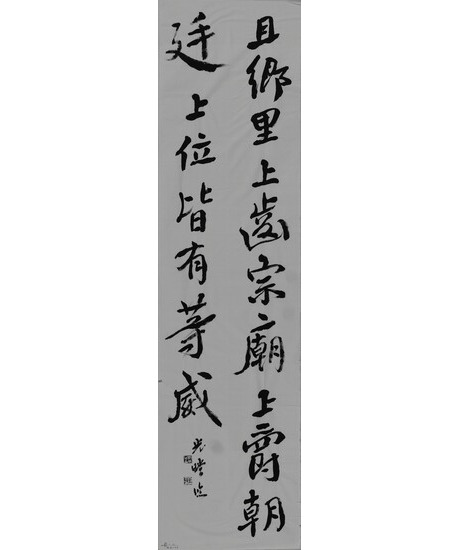 且鄉里上齒宗廟上爵朝
廷上位皆有等威